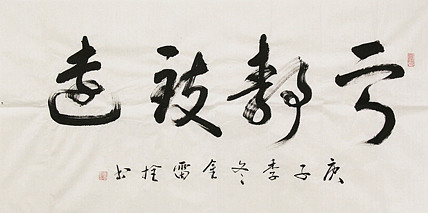 宁静致远
庚子季冬金雷拴书